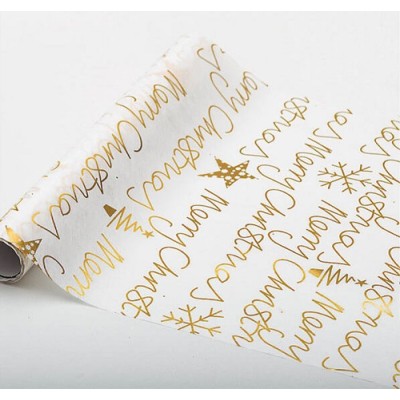 Merry Christmas
Merry Christmas
Merry Christmas
Merry Christmas
Merry Christmas
Merry Christ
Merry